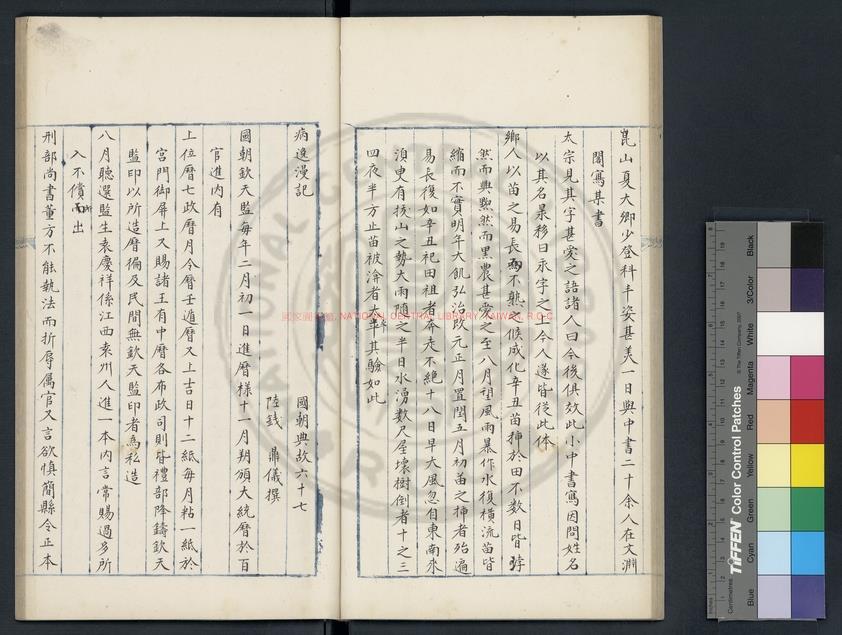 崑山夏大卿少登科丰姿甚美一日與中書二十余人在文淵
閣寫某書
太宗見其字甚愛之語諸人曰今後俱效此小中書寫因問姓名
以其名昶移日永字之上今人遂皆從此体
鄉人以苗之易長而不熟候成化辛丑苗揷於田不数日皆
然而興黝然而黑農甚愛之至八月望風雨暴作水復橫流苗皆
縮而不實明年大飢弘治改元正月置閏五月初苗之揷者殆遍
易長復如辛丑祀田祖者奔走不絶十八日早大風忽自東南來
湏臾有拔山之勢大雨隨之半日水湧数尺屋壞樹倒者十之三
四夜半方止苗被渰者太半其驗如此
病逸漫記 國朝典故六十七
陸釴 鼎儀撰
國朝欽天監每年二月初一日進曆樣十一月朔頒大統曆於百
官進内有
上位曆七政曆月令曆壬遁曆又上吉日十二紙每月粘一紙於
宮門御屏上又賜諸王有中曆各布政司則皆禮部降鑄欽天
監印以所造曆徧及民間無欽天監印者為私造
八月聽選監生袁慶祥係江西袁州人進一本内言常賜過多所
入不償所出
刑部尚書董方不能執法而折辱属官又言欲慎簡縣令正本
國家圖書館, NATIONAL CENTRAL LIBRARY, TAIWAN, R.O.C
TIFFEN Color Control Patches
© The Tiffen Company, 2007
Inches
Centimetres
Blue
Cyan
Green
Yellow
Red
Magenta
White
3/Color
Black